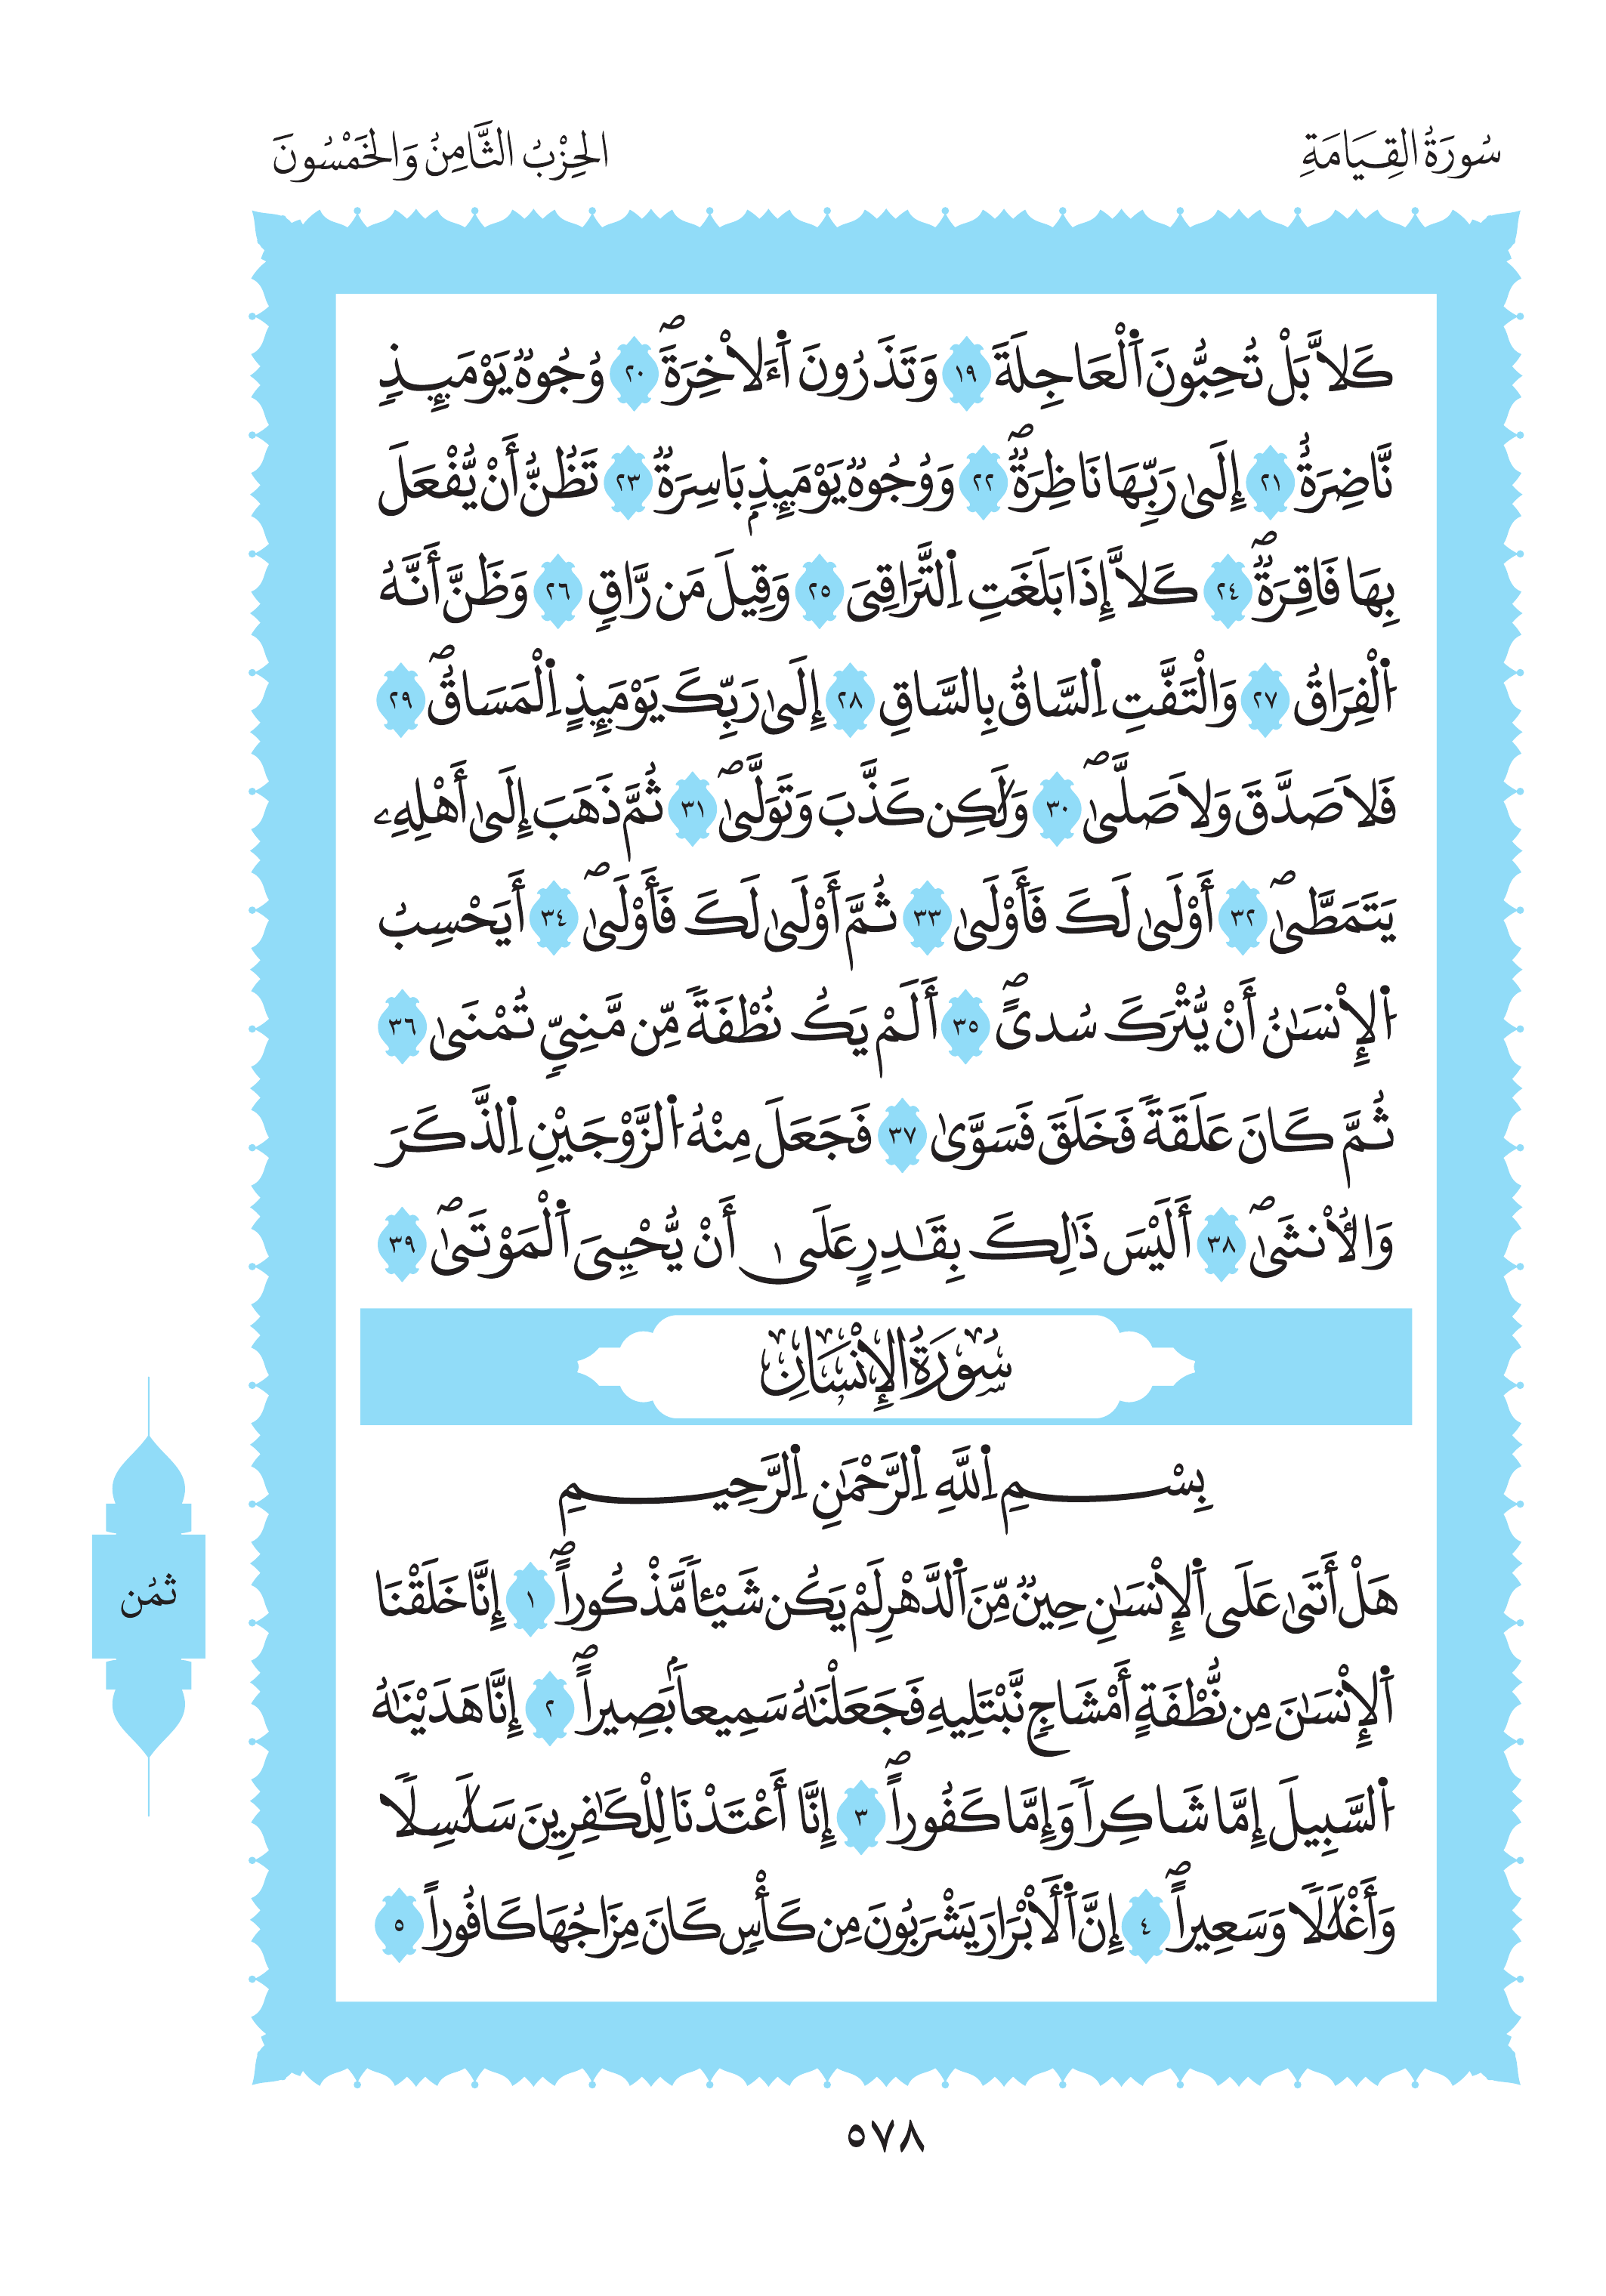 سُورَةُ الْقِيَامَةِ
الحِزْبُ الثَّامِنُ وَالخَمْسُونَ
كَلاَّ بَلْ تُحِبُّونَ اَ۬لْعَاجِلَةَ ١٩ وَتَذَرُونَ اَ۬ءَلاْخِرَةَۖ ٢٠ وُجُوهٞ يَوْمَئِذٖ
نَّاضِرَةٌ ٢١ إِلَىٰ رَبِّهَا نَاظِرَةٞۖ ٢٢ وَوُجُوهٞ يَوْمَئِذِۢ بَاسِرَةٞ ٢٣ تَظُنُّ أَنْ يُّفْعَلَ
بِهَا فَاقِرَةٞۖ ٢٤ كَلاَّ إِذَا بَلَغَتِ اِ۬لتَّرَاقِيَ ٢٥ وَقِيلَ مَن رَّاقٖ ٢٦ وَظَنَّ أَنَّهُ
اُ۬لْفِرَاقُ ٢٧ وَالْتَفَّتِ اِ۬لسَّاقُ بِالسَّاقِ ٢٨ إِلَىٰ رَبِّكَ يَوْمَئِذٍ اِ۬لْمَسَاقُۖ ٢٩
فَلاَ صَدَّقَ وَلاَ صَلَّىٰۖ ٣٠ وَلَٰكِن كَذَّبَ وَتَوَلَّىٰۖ ٣١ ثُمَّ ذَهَبَ إِلَىٰ أَهْلِهِۦ
يَتَمَطَّىٰۖ ٣٢ أَوْلَىٰ لَكَ فَأَوْلَىٰ ٣٣ ثُمَّ أَوْلَىٰ لَكَ فَأَوْلَىٰۖ ٣٤ أَيَحْسِبُ
اُ۬لْإِنسَٰنُ أَنْ يُّتْرَكَ سُدىًۖ ٣٥ أَلَمْ يَكُ نُطْفَةٗ مِّن مَّنِيّٖ تُمْنَىٰ ٣٦
ثُمَّ كَانَ عَلَقَةٗ فَخَلَقَ فَسَوَّىٰ ٣٧ فَجَعَلَ مِنْهُ اُ۬لزَّوْجَيْنِ اِ۬لذَّكَرَ
وَالُانثَىٰۖ ٣٨ أَلَيْسَ ذَٰلِكَ بِقَٰدِرٍ عَلَىٰ أَنْ يُّحْيِيَ اَ۬لْمَوْتَىٰۖ ٣٩
سُورَةُ الْإِنْسَانِ
بِسْمِ اِ۬للَّهِ اِ۬لرَّحْمَٰنِ اِ۬لرَّحِيمِ
هَلْ أَتَىٰ عَلَى اَ۬لْإِنسَٰنِ حِينٞ مِّنَ اَ۬لدَّهْرِ لَمْ يَكُن شَيْـٔاٗ مَّذْكُوراًۖ ١ إِنَّا خَلَقْنَا
اَ۬لْإِنسَٰنَ مِن نُّطْفَةٍ أَمْشَاجٖ نَّبْتَلِيهِ فَجَعَلْنَٰهُ سَمِيعاَۢ بَصِيراًۖ ٢ إِنَّا هَدَيْنَٰهُ
اُ۬لسَّبِيلَ إِمَّا شَاكِراٗ وَإِمَّا كَفُوراًۖ ٣ إِنَّا أَعْتَدْنَا لِلْكَٰفِرِينَ سَلَٰسِلاٗ
وَأَغْلَٰلاٗ وَسَعِيراًۖ ٤ إِنَّ اَ۬لَابْرَارَ يَشْرَبُونَ مِن كَأْسٖ كَانَ مِزَاجُهَا كَافُوراً ٥
ثمُن
٥٧٨